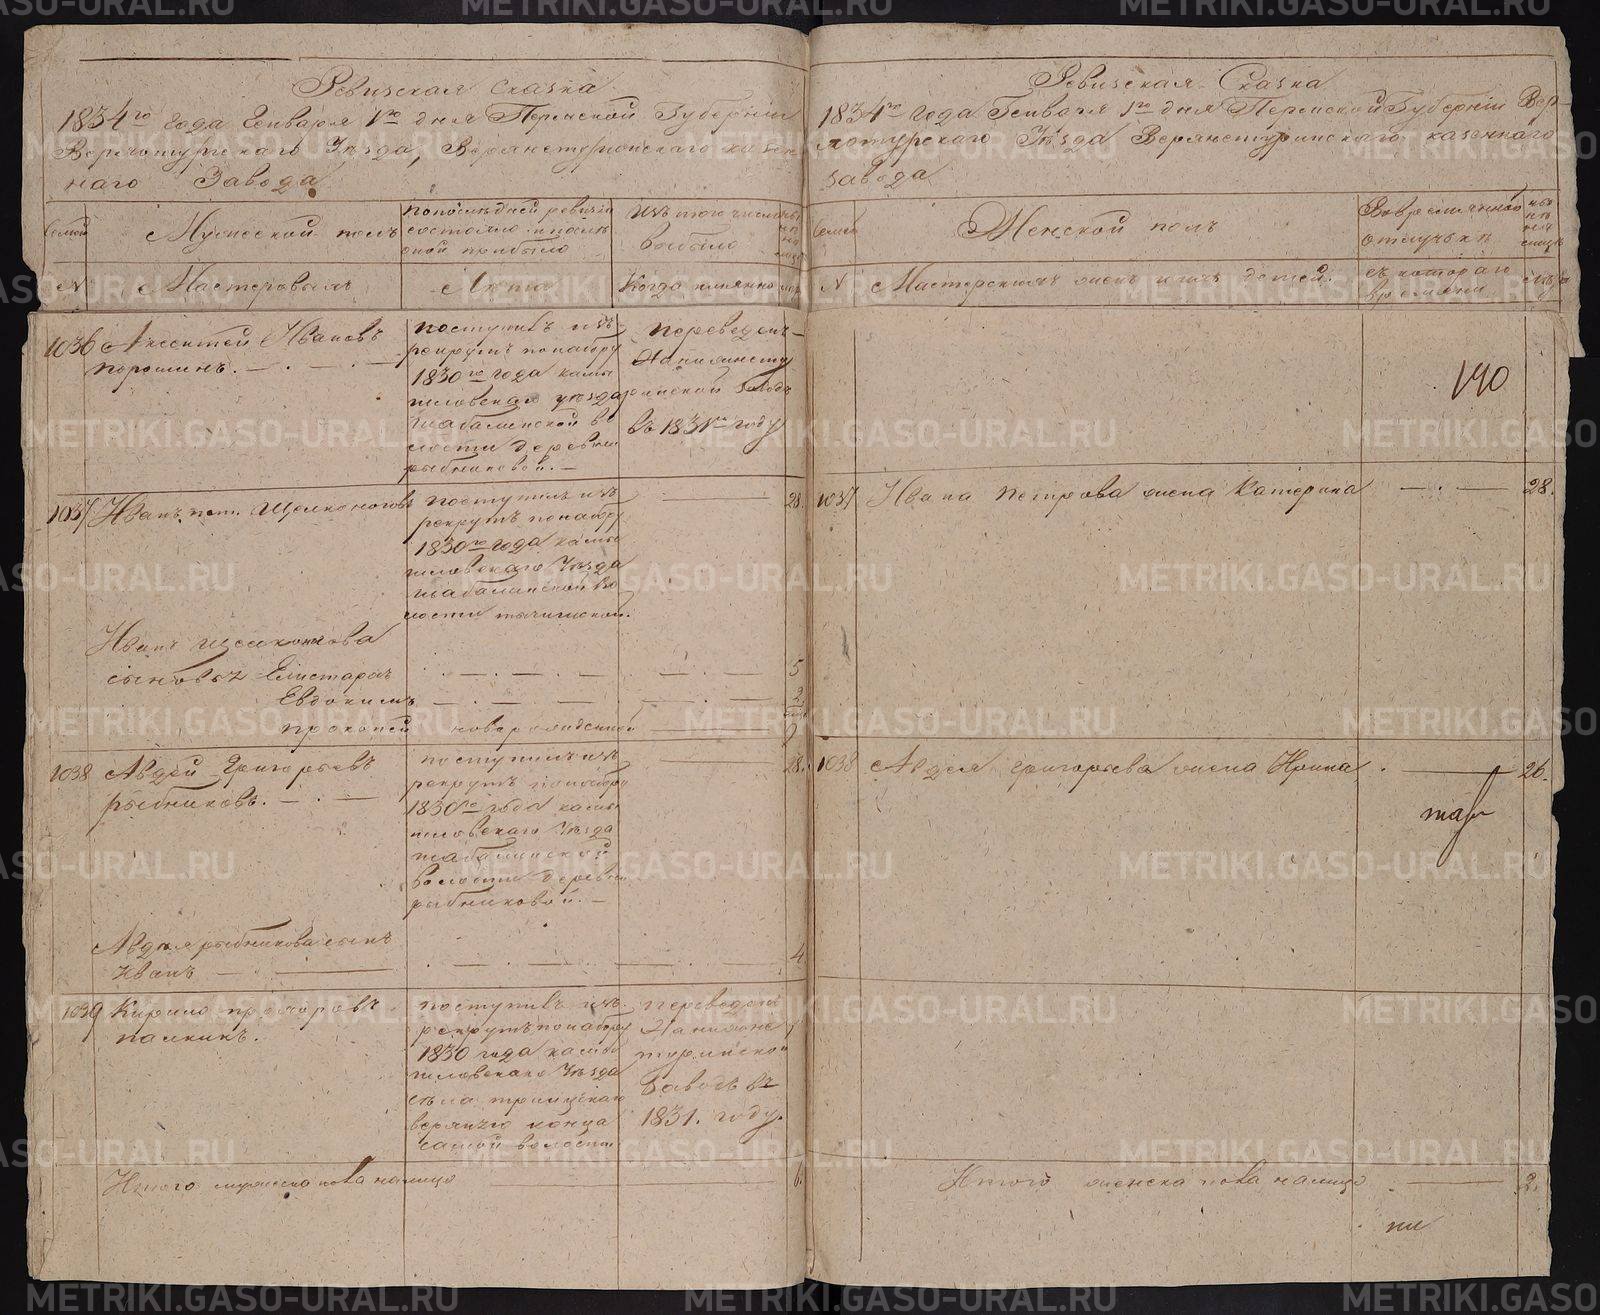 Ревизская Сказка
1834го года Генваря 1го дня Пермской Губернии
Верхотурскаго Уезда, Верхнетуринскаго казен
наго Завода
Семьи
Мужеской полъ
По последней ревизiи
состояло и после
оной прибыло
Изъ того числа
выбыло
N
Мастеровыхъ
Лета
Когда имянно
1036 Алексей Ивановъ
Порошинъ.
поступилъ изъ
рекрутъ по набору
1830го года камы
шловскаго уезда
шабалинской во
лости деревни
рыбниковой.
переведенъ
На нижнету
ринской заводъ
въ 1831мъ году
1037 Иванъ пет. Щелконоговъ
поступилъ изъ
рекрутъ по набору
1830го года камы
шловскаго Уезда
шабалинской во
лости
28.
Иванъ Щелконогова
сыновья Елистаръ
5
Евдокимъ
2
прокопей новорожденной
1038 Авдей Григорьевъ
рыбниковъ.
поступилъ изъ
рекрутъ по набору
1830го года камы
шловскаго Уезда
шабалинской
волости деревни
рыбниковой.
28.
Авдея рыбникова сынъ
Иванъ
4
1039 Кирило прохоровъ
палкинъ.
поступилъ изъ
рекрутъ по набору
1830 года камы
шловскаго Уезда
села троицкаго
конца
волости
переведенъ
На нижне
туринской
Заводъ въ
1831. году.
Итого мужеска пола на лицо 6.
Ревизская Сказка
1834го года Генваря 1го дня Пермской Губернiи Вер-
хотурскаго Уезда Верхнетуринскаго казеннаго
завода
Семьи
Женской полъ
Во временной
отлучке
N
Мастерскихъ женъ и ихъ детей.
съ котораго
времени
190
1037 Ивана петрова жена Катерина 28.
1038 Авдея григорьева жена Ирина 26.
Итого женска пола на лицо 2.